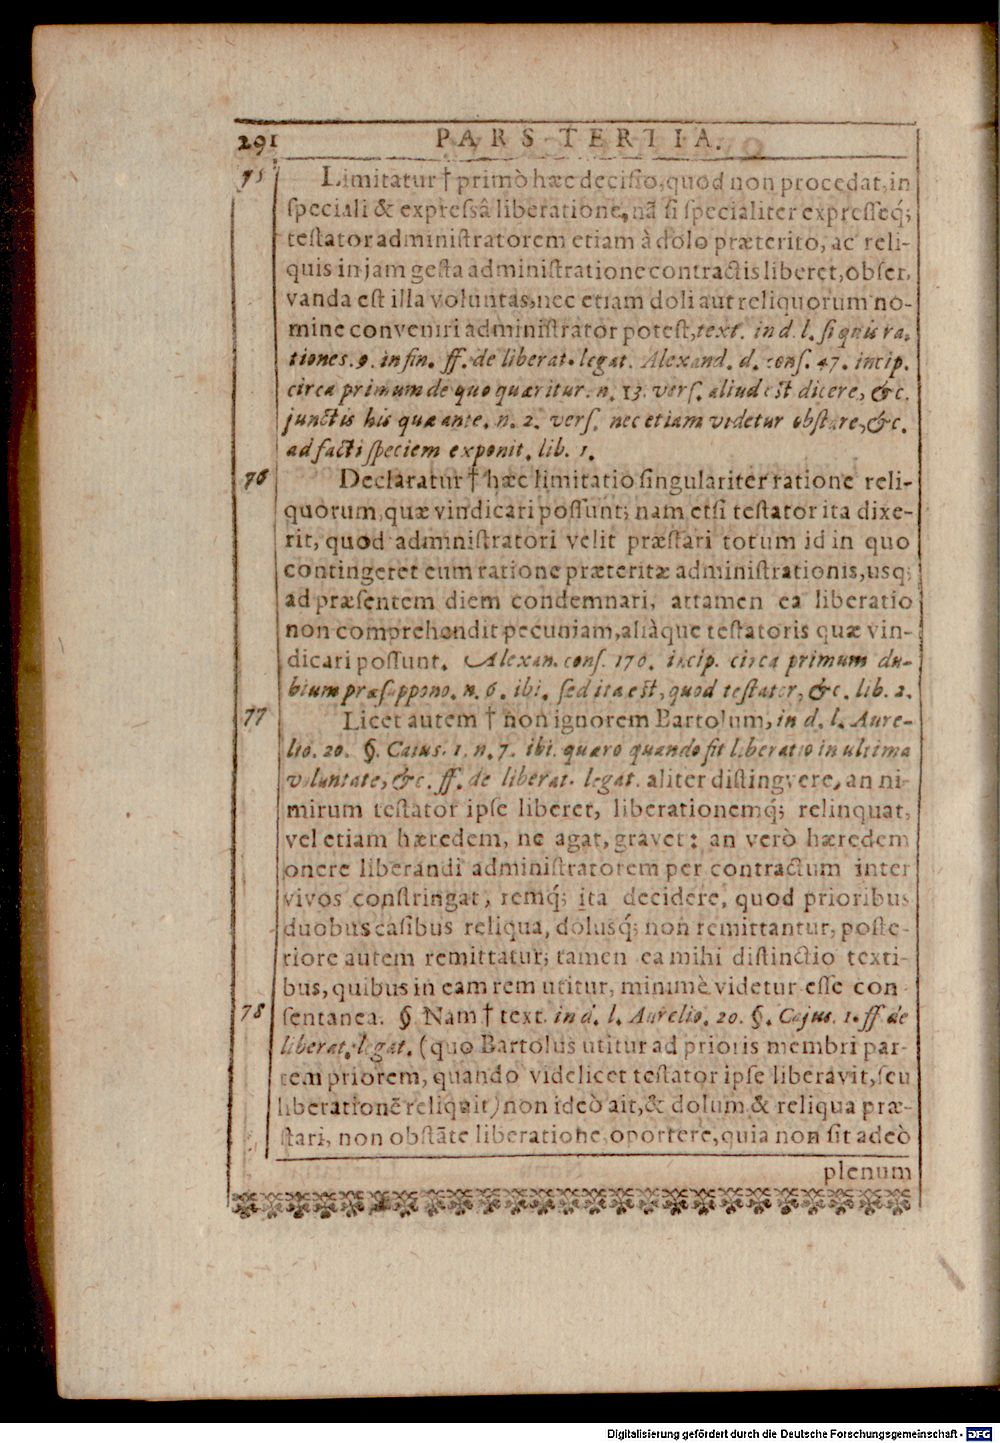 291 PARS TERTIA.
75 Limitatur † primò hæc decisio, quod non procedat, in
speciali & expressâ liberatione, nā si specialiter expresseq́;
testator administratorem etiam à dolo præterito, ac reli-
quis in jam gesta administratione contractis liberet, obser,
vanda est illa voluntas, nec etiam doli aut reliquorum no-
mine conveniri administrator potest, text. in d. l. si quis ra.
tiones. 9. in fin. ff. de liberat. legat. Alexand. d. cons. 47. incip.
circa primum de quo quæritur. n. 13. vers. aliud est dicere, &c.
junctis his quæ ante. n. 2. vers. nec etiam videtur obstare, &c.
ad facti speciem exponit. lib. 1.
76 Declaratur † hæc limitatio singulariter ratione reli-
quorum, quæ vindicari possunt; nam etsi testator ita dixe-
rit, quod admnistratori velit præstari totum id in quo
contingeret eum ratione præteritæ administrationis, usq;
ad præsentem diem condemnari, attamen ea liberatio
non comprehendit pecuniam, aliàque testatoris quæ vin-
dicari possunt. Alexan. cons. 170. incip. circa primum du-
bium præsuppono. n. 6. ibi. sed ita est, quod testator, &c. lib. 2.
77 Licet autem † non ignorem Bartolum, in d. l. Aure-
lio. 20. §. Caius. 1. n. 7. ibi. quæro quando fit liberatio in ultima
voluntate, &c. ff. de liberat. legat. aliter distingvere, an ni-
mirum testator ipse liberet, liberationemq́; relinquat,
vel etiam hæredem, ne agat, gravet: an verò hæredem
onere liberandi administratorem per contractum inter
vivos constringat, remq́; ita decidere, quod prioribus
duobus casibus reliqua, dolusq́; non remittantur, poste-
riore autem remittatur; tamen ea mihi distinctio texti-
bus, quibus in eam rem utitur, minimè videtur esse con
78 sentanea. § Nam † text. in d. l. Aurelio. 20. §. Cajus. 1. ff de
liberat. legat. (quo Bartolus utitur ad prioris membri par-
tem priorem, quando videlicet testator ipse liberavit, seu
liberationē reliquit) non ideò ait, & dolum & reliqua præ-
stari, non obstāte liberatione oportere, quia non sit adeò
plenum
Digitalisierung gefördert durch die Deutsche Forschungsgemeinschaft - DFG